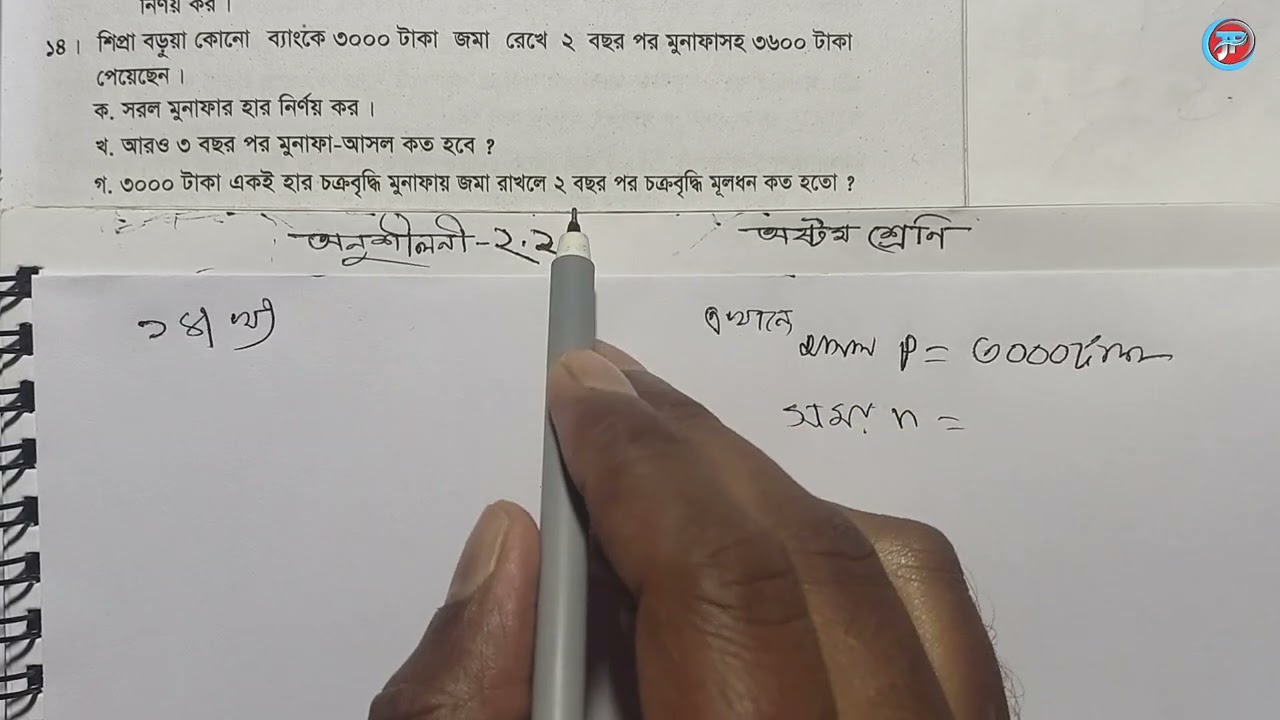 নির্ণয় কর ।
১৪ । শিপ্রা বড়ুয়া কোনো ব্যাংকে ৩০০০ টাকা জমা রেখে ২ বছর পর মুনাফাসহ ৩৬০০ টাকা
পেয়েছেন ।
ক. সরল মুনাফার হার নির্ণয় কর ।
খ. আরও ৩ বছর পর মুনাফা-আসল কত হবে ?
গ. ৩০০০ টাকা একই হার চক্রবৃদ্ধি মুনাফায় জমা রাখলে ২ বছর পর চক্রবৃদ্ধি মূলধন কত হতো ?
অনুশীলনী-২.২ অষ্টম শ্রেনি
১৪। খ) এখানে
আসল P = ৩০০০ টাকা
সময় n =